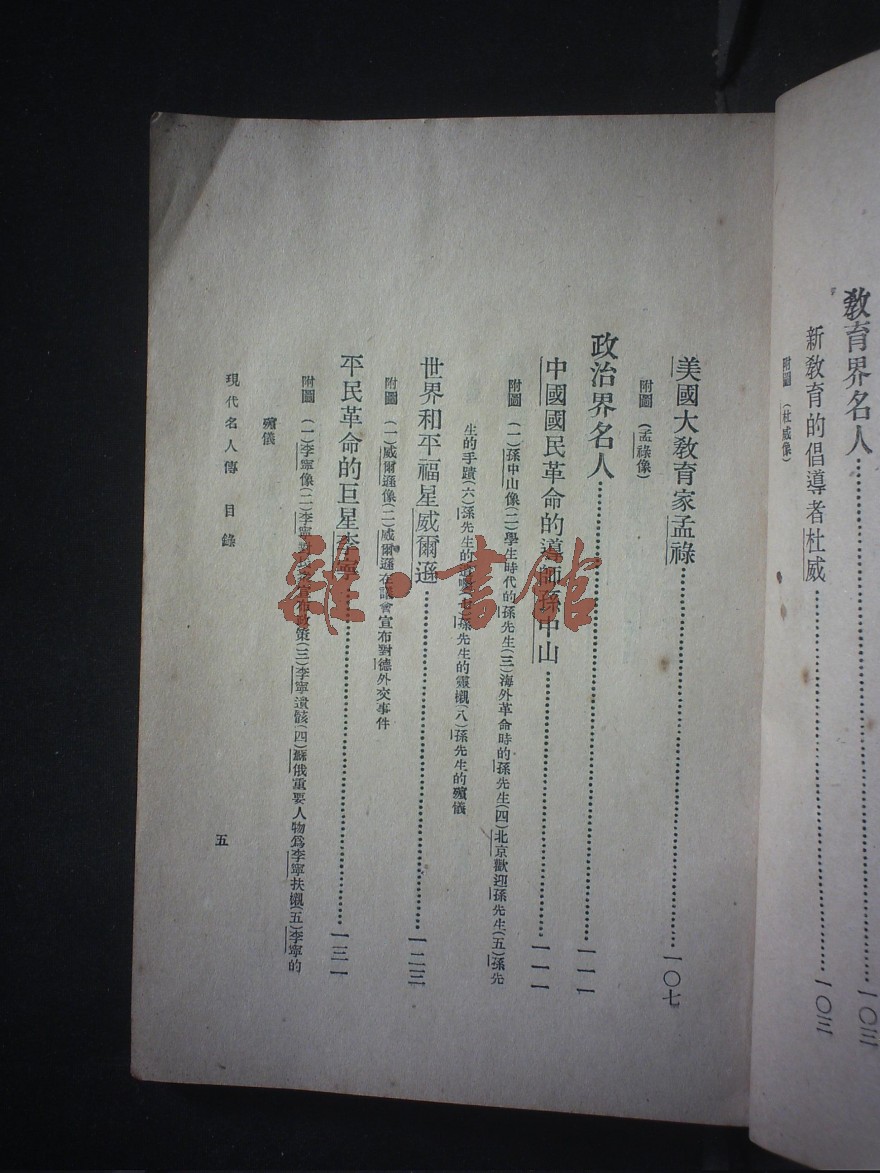 教育界名人⋯⋯一〇三
新教育的倡導者杜威⋯⋯一〇三
附圖 (杜威像)
美國大教育家孟祿⋯⋯一〇七
附圖 (孟祿像)
政治界名人⋯⋯一一一
中國國民革命的導師孫中山⋯⋯一一一
附圖 (一)孫中山像(二)學生時代的孫先生(三)海外革命時的孫先生(四)北京歡迎孫先生(五)孫先
生的手蹟(六)孫先生的 孫先生的靈櫬(八)孫先生的殯儀
世界和平福星威爾遜⋯⋯一二三
附圖 (一)威爾遜像(二)威爾遜在議會宣布對德外交事件
平民革命的巨星李寧⋯⋯一三一
附圖 (一)李寧像(二)李寧對民衆宣布政策(三)李寧遺骸(四)蘇俄重要人物爲李寧扶櫬(五)李寧的
殯儀
現代名人傳 目錄
五
雜·書館